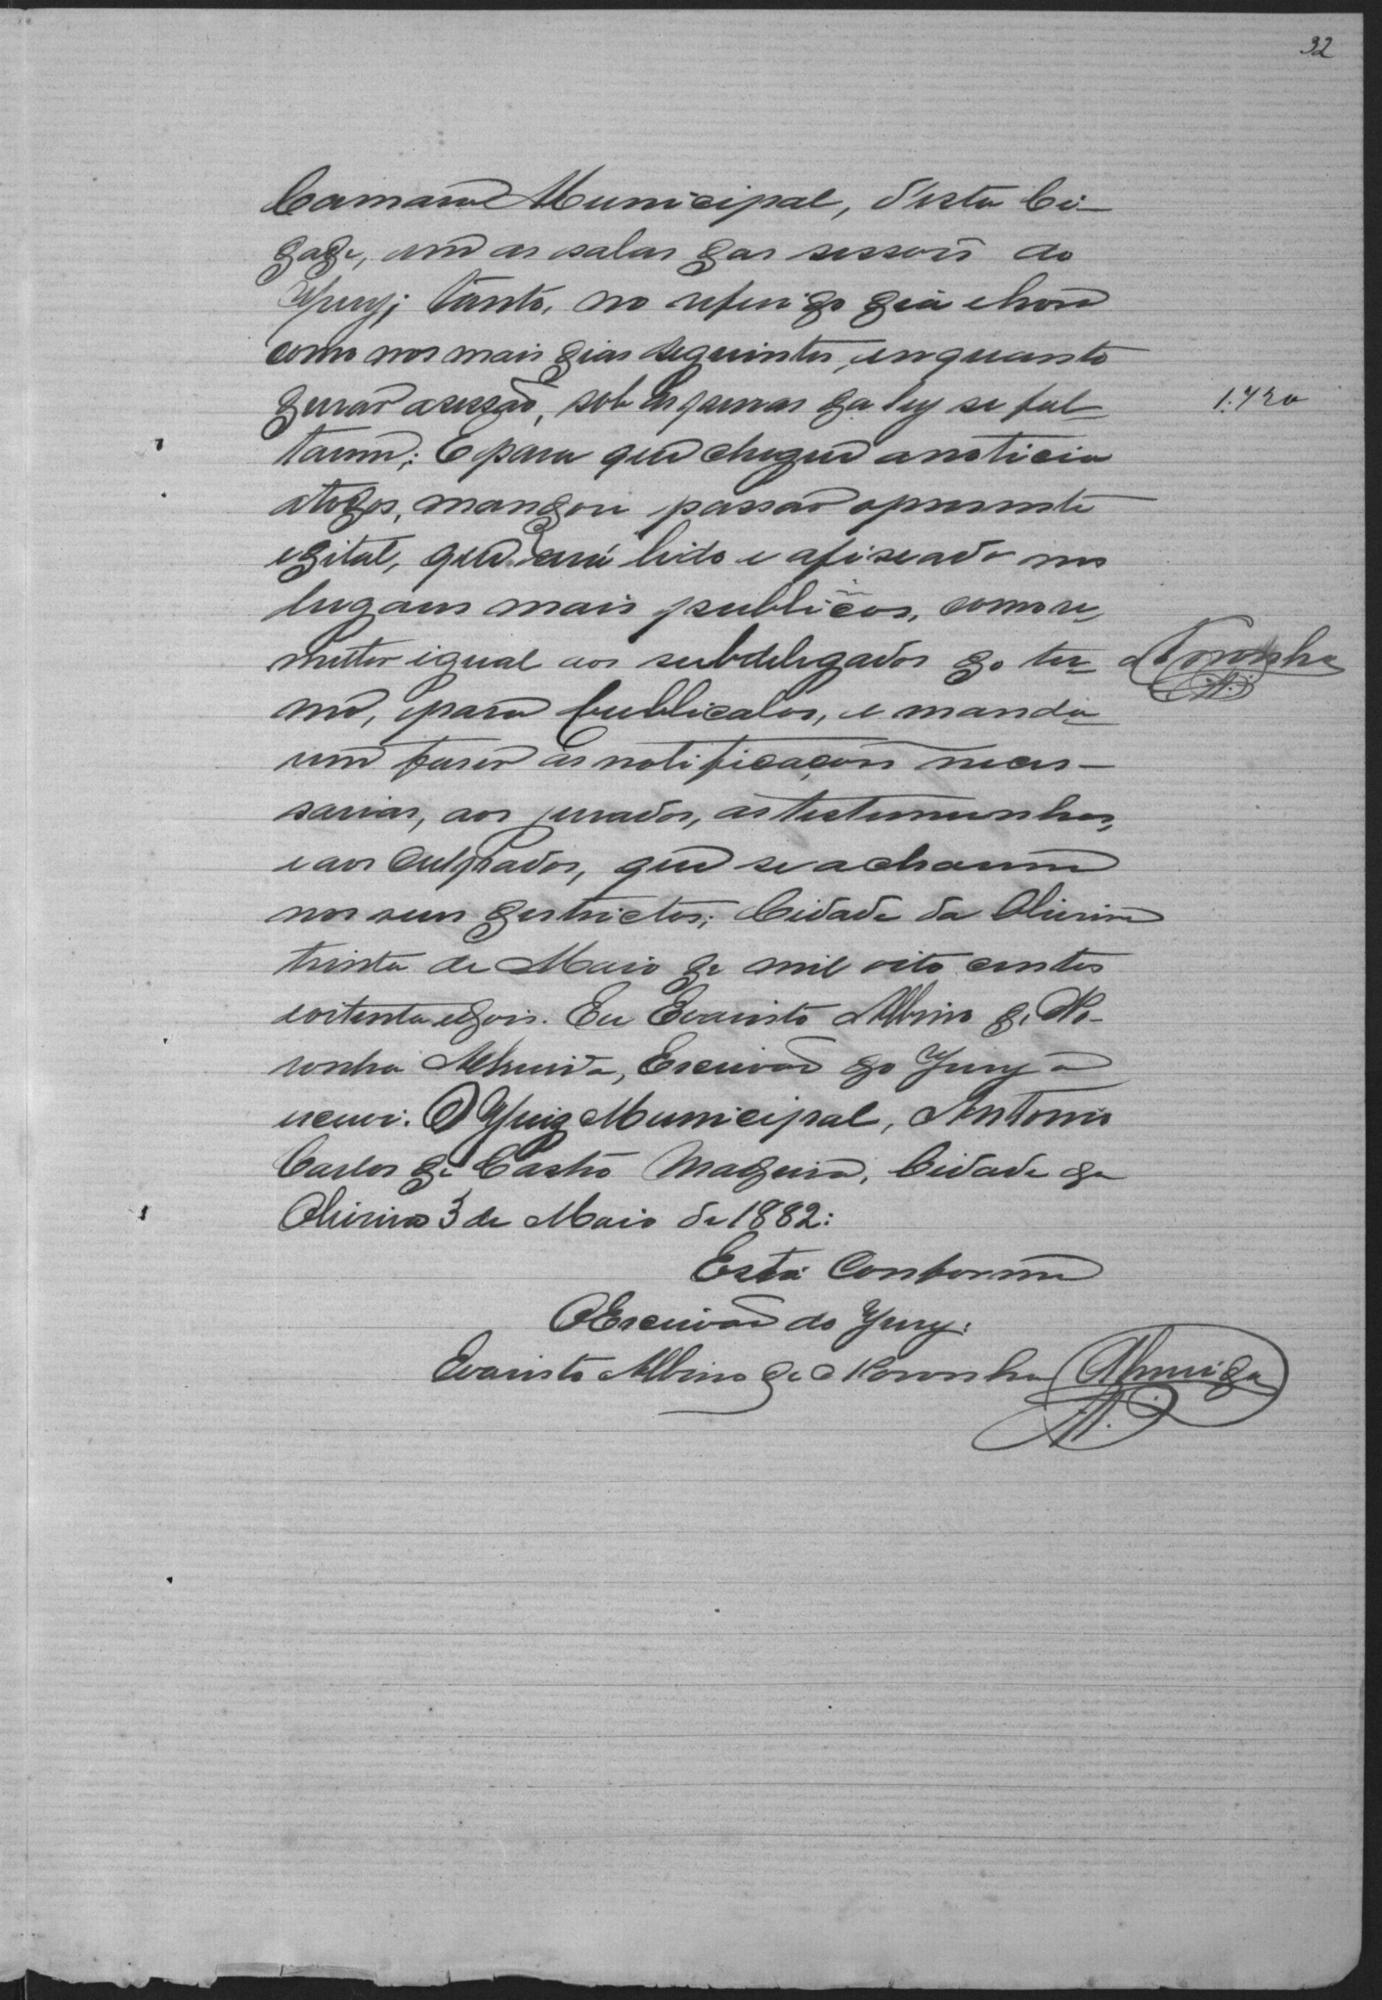 32
Camara Municipal, d'esta Ci-
dade, em as salas das sessoes do
Jury; tanto, no referido dia e hora
como nos mais dias seguintes, enquanto
durar a sessão, sob as penas da ley se fal-
1.720
tarem; E para que chegue a noticia
a todos, mandou passar o presente
edital, que será lido e afixado nos
lugares mais publicos, como re-
metter igual aos subdelegados do ter-
Noronha
mo, para publicalos, e manda-
rem faser as notificaçoes neces-
sarias, aos jurados, as testemunhas,
e aos culpados, que se acharem
nos seus destrictos; Cidade da Oliveira
trinta de Maio de mil oito centos
e oitenta e dois. Eu Evaristo Albino de No-
ronha Almeida, Escrivão do Jury o
escrevi. O Juiz Municipal, Antonio
Carlos de Castro Madeira, Cidade da
Oliveira 3 de Maio de 1882:
Está Conforme
O Escrivão do Jury:
Evaristo Albino de Noronha Almeida